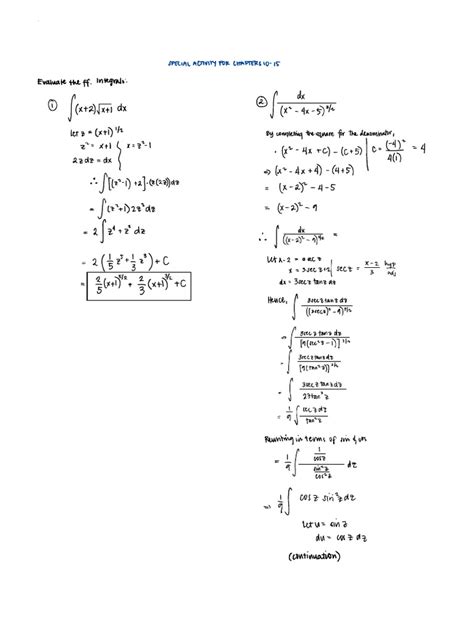 SPECIAL ACTIVITY FOR CHAPTERS 10-15
Evaluate the ff. Integrals:
① ∫(x+2)√x+1 dx
let z = (x+1)^1/2
z² = x+1 { x = z²-1
2z dz = dx
∴ ∫[(z²-1)+2]·(z(2z))dz
= ∫(z²+1) 2z² dz
= 2∫ z⁴ + z² dz
= 2(1/5 z⁵ + 1/3 z³) + C
= 2/5 (x+1)^5/2 + 2/3 (x+1)^3/2 + C
② ∫ dx / (x² - 4x - 5)^3/2
By completing the square for the denominator,
· (x² - 4x + C) - (C+5) | C = (-4)² / 4(1) = 4
⇒ (x² - 4x + 4) - (4+5)
= (x-2)² - 4 - 5
= (x-2)² - 9
∴ ∫ dx / ((x-2)² - 9)^3/2 =
let x-2 = a sec z
x = 3sec z+2 | sec z = x-2 / 3 hyp / adj
dx = 3sec z tan z dz
Hence, ∫ 3sec z tan z dz / ((3sec z)² - 9)^3/2
= ∫ 3sec z tan z dz / [9(sec² z - 1)]^3/2
= ∫ 3sec z tan z dz / [9(tan² z)]^3/2
= ∫ 3sec z tan z dz / 27tan³ z
= 1/9 ∫ sec z dz / tan² z
Rewriting in terms of sin & cos
= 1/9 ∫ 1/cos z / sin² z/cos² z dz
⇒ 1/9 ∫ cos z sin⁻² z dz
let u = sin z
du = cos z dz
(continuation)